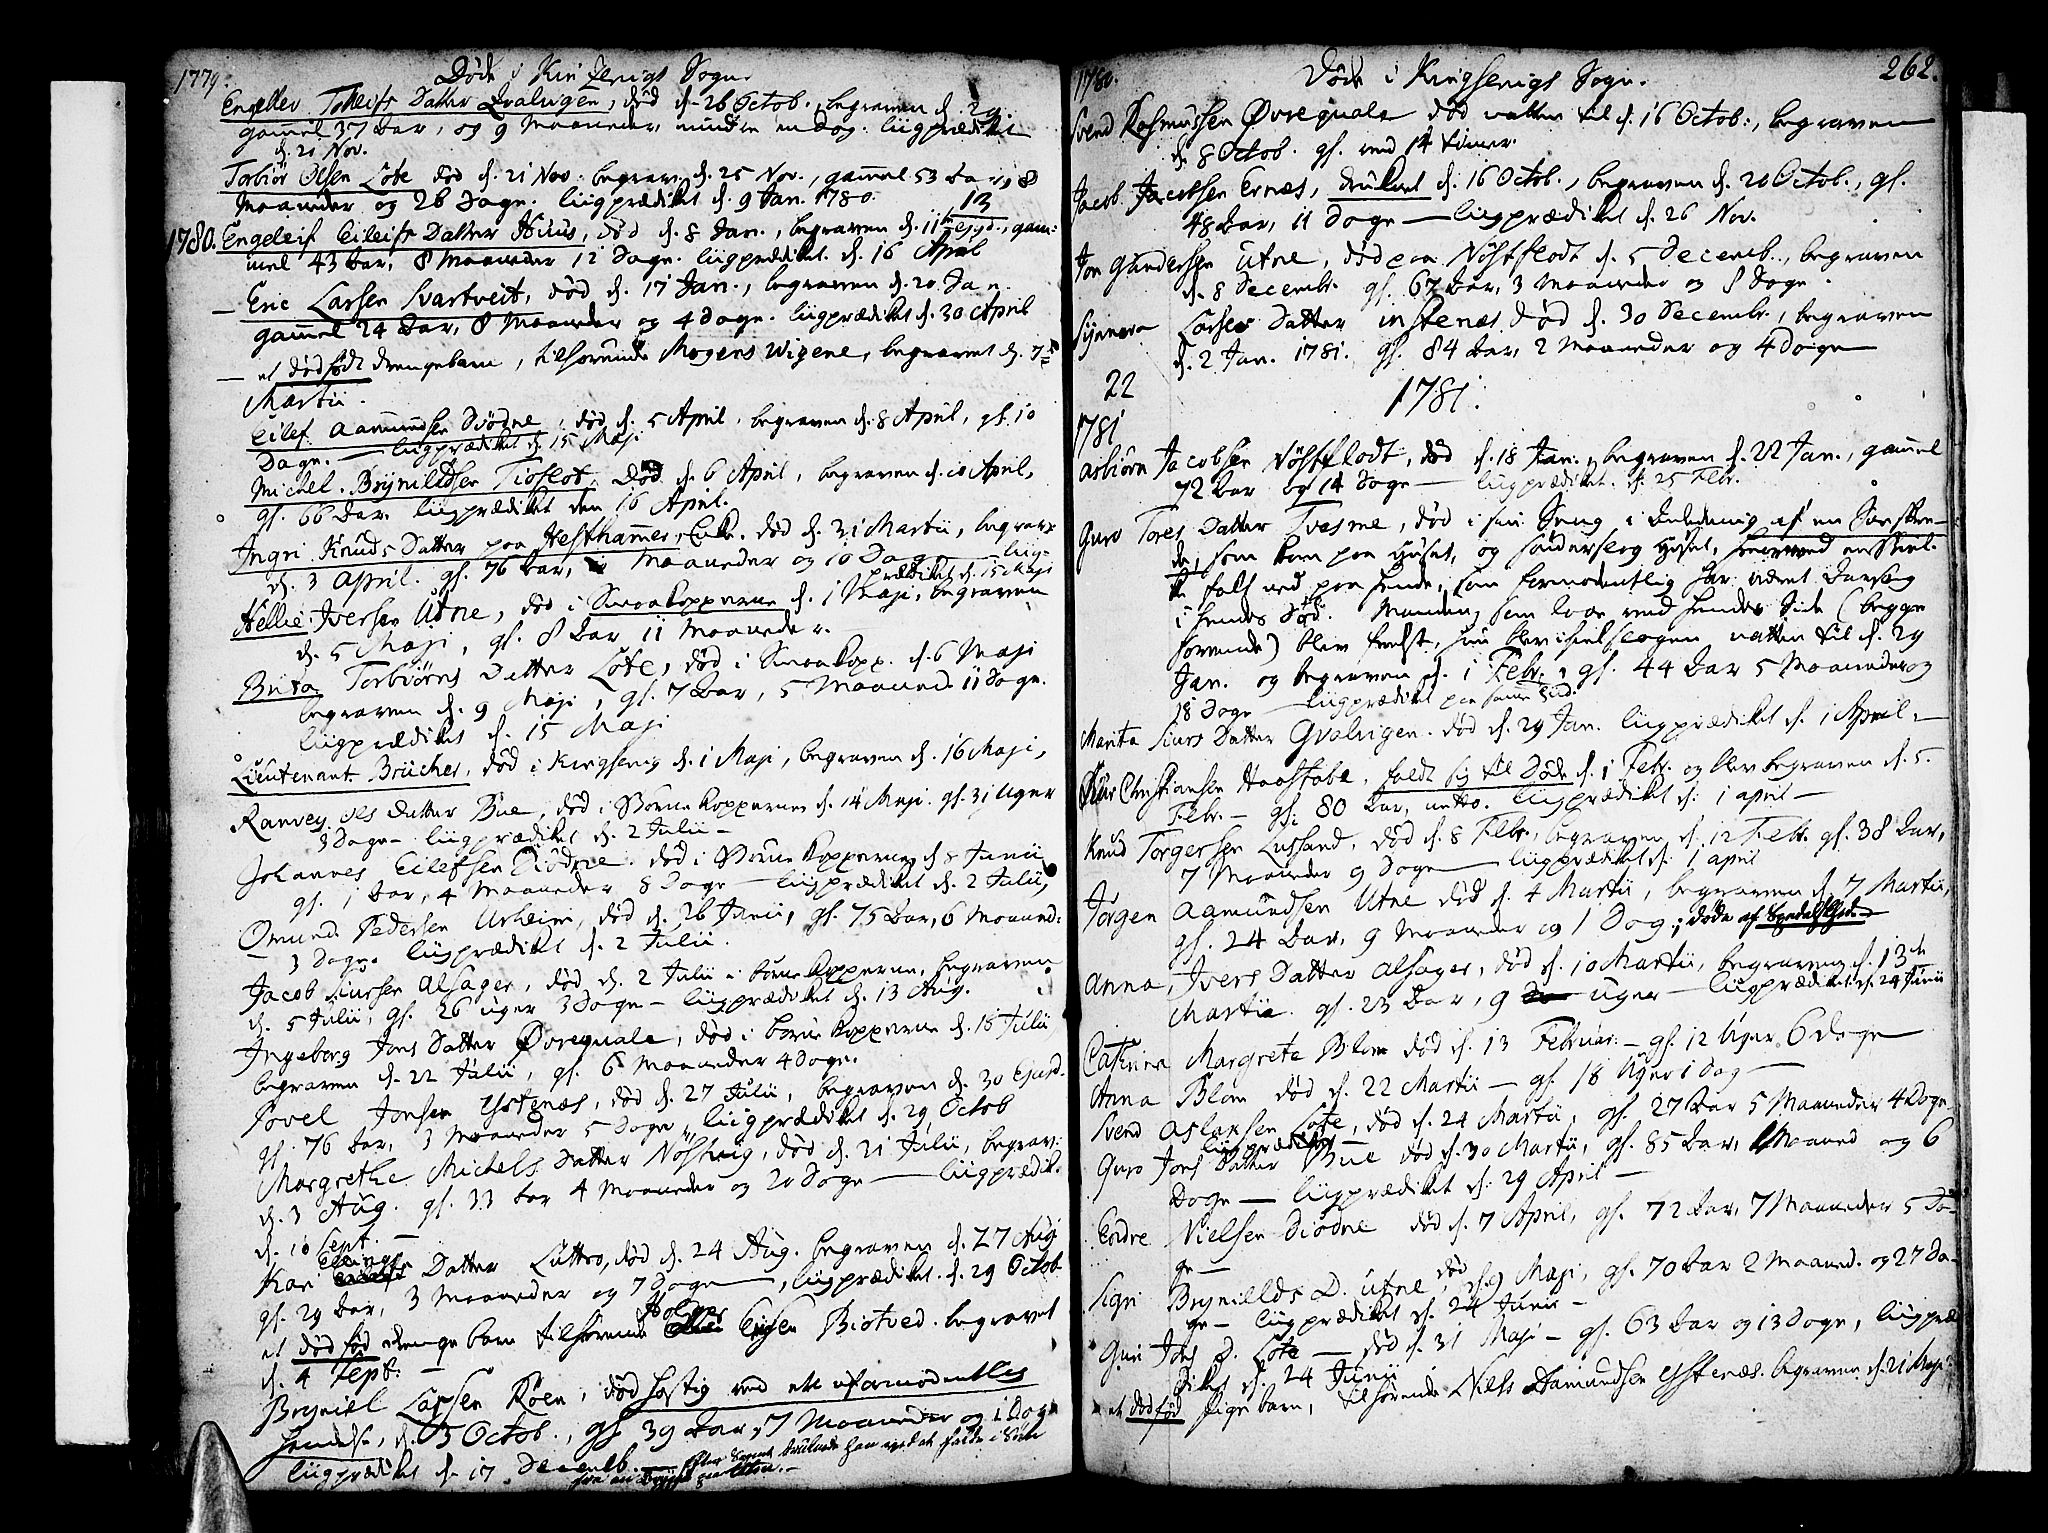 1779. Døde i Kingservigs Sogn.
Engelev Tolleifs Datter Qvalvigen, død d. 26 Octob., begraven d. 29
gammel 37 Aar, og 9 Maaneder mindre en Dag. Liigprædiket
d. 21 Nov.
Torbiør Olsen Lote død d. 21 Nov. begrav. d. 25 Nov., gammel 53 Aar, 8
Maaneder og 26 Dage. Liigprædiket d. 9 Jan. 1780.
13
1780. Engeleif Eileifs Datter Huus, død d. 8 Jan., begraven d. 11te ejusd., gam-
mel 43 Aar, 8 Maaneder 12 Dage. Liigprædiket d. 16 April
— Eric Larsen Svartveit, død d. 17 Jan., begraven d. 20 Jan.
gammel 24 Aar, 8 Maaneder og 4 Dage. Liigprædiket d. 30 April
— et dødfødt drengebarn, tilhørende Mogens Wigene, begravet d. 7de
Martii.
Eilef Aamundsen Diødne, død d. 5 April, begraven d. 8 April, gl. 10
Dage. — Liigprædiket d. 15 Maji
Michel Bryniildsen Tioflot, død d. 6 April, begraven d. 10 April,
gl. 66 Aar. Liigprædiket den 16 April.
Ingri Knuds Datter paa Hesthammer, Enke. død d. 31 Martii, begraven
d. 3 April. gl. 76 Aar, Maaneder og 10 Dage — Liig-
prædiket d. 15 Maji
Hellie Iversen Utne, død i Smaakopperne d. 1 Maji, begraven
d. 5 Maji, gl. 8 Aar 11 Maaneder.
Brita Torbiørns Datter Lote, død i Smaakopp. d. 6 Maji
begraven d. 9 Maji, gl. 7 Aar, 5 Maaned. 11 Dage.
Liigprædiket d. 15 Maji
Lieutenant Brücher, død i Kingservig d. 1 Maji, begraven d. 16 Maji,
Ranvey Ols Datter Bue, død i Børnekopperne d. 14 Maji. gl. 31 Uger
3 Dage — Liigprædiket d. 2 Julii —
Johannes Eilefsen Diødne. død i Børnekopperne d. 8 Junii
gl. 1 Aar, 4 Maaneder 8 Dage — Liigprædiket d. 2 Julii,
Omund Pedersen Urheim, død d. 26 Junii, gl. 75 Aar, 6 Maaned.
3 Dage. Liigprædiket d. 2 Julii.
Jacob Siursen Alsager, død d. 2 Julii i børnekopperne, begraven
d. 5 Julii, gl. 26 uger 3 Dage — Liigprædiket d. 13 Aug.
Ingeborg Jons Datter Øvrequale, død i børnekopperne d. 18 Julii
begraven d. 22 Julii, gl. 6 Maaneder 4 Dage.
Povel Jonsen Ystenæs, død d. 27 Julii, begraven d. 30 Ejusd.
gl. 76 Aar, 3 Maaneder 5 Dage, Liigprædiket d. 29 Octob
Margrethe Michels Datter Nøstvig, død d. 21 Julii, begrav.
d. 3 Aug. gl. 33 Aar 4 Maaneder og 20 Dage — Liigprædik.
d. 10 Sept. —
Kari Ellings Datter Luttro, død d. 24 Aug. begraven d. 27 Aug
gl. 29 Aar, 3 Maaneder og 7 Dage —, Liigprædiket d. 29 Octob
et død fød drenge barn tilhørende Holger Biotved. begravet
d. 4 Sept. —
Bryniel Larsen Røen, død hastig ved en uformodentlig
Hendelse, d. 5 Octob., gl. 39 Aar, 7 Maaneder og 1 Dag
Liigprædiket d. 17 Decemb.

1780. Døde i Kingservigs Sogn. 262.
Svend Rasmussen Øvrequale død natten til d. 16 Octob., begraven
d. 8 Octob. gl. ved 14 timer.
Jacob Jacobsen Ernæs, druknet d. 16 Octob., begraven d. 20 Octob., gl.
48 Aar, 11 Dage — Liigprædiket d. 26 Nov.
Jon Gundersen Utne, død paa Nøstflodt d. 5 Decemb., begraven
d. 8 Decembr. gl. 67 Aar, 3 Maaneder og 8 Dage.
Synneva Larses Datter Instenæs død d. 30 Decembr., begraven
d. 2 Jan. 1781. gl. 84 Aar, 2 Maaneder og 4 Dage —
22
1781.
1781
Asbiørn Jacobsen Nøstflodt, død d. 18 Jan., begraven d. 22 Jan., gammel
72 Aar og 14 Dage — Liigprædiket d. 25 Febr.
Guro Tores Datter Tvesme, død i sin Seng, i Anledning af en Sneskre-
de, som kom paa Huset, og sønderslog Huset, hvorved en Steel-
ke falt ned paa hende, som formodentlig har været Aarsag
i hendes Død. Manden, som laae ved hendes Side (begge
sovende) blev frelst, hun blev ihielslagen natten til d. 29
Jan. og begraven d. 1 Febr., gl. 44 Aar 5 Maaneder og
18 Dage — Liigprædiket paa samme Tid.
Marita Siurs Datter Qvalvigen. død d. 29 Jan. Liigprædiket d. 1 April —
Christiansen Haastabe, faldt sig til Døde d. 1 Febr. og blev begraven d. 5.
Febr. — gl. 80 Aar, netto. Liigprædiket d. 1 april —
Knud Torgersen Lussand, død d. 8 Febr., begraven d. 12 Febr. gl. 38 Aar,
7 Maaneder 9 Dage — Liigprædiket d. 1 april
Jørgen Aamundsen Utne død d. 4 Martii, begraven d. 7 Martii,
gl. 24 Aar, 9 Maaneder og 1 Dag; døde af Spedalskhed —
Anna Ivers Datter Alsager, død d. 10 Martii, begraven d. 13de
Martii. gl. 23 Aar, 9 uger — Liigprædiket d. 24 Junii
Cathrina Margreta Blom død d. 13 Februar. — gl. 12 Uger, 6 Dage
Anna Blom død d. 22 Martii — gl. 18 Uger 1 Dag —
Svend Aslaksen Lote, død d. 24 Martii, gl. 27 Aar 5 Maaneder 4 Dage
Liigprædiket
Guro Jons Datter Bue død d. 30 Martii, gl. 85 Aar, 1 Maaned og 6
Dage — Liigprædiket d. 29 April —
Endre Nielsen Diødne død d. 7 April, gl. 72 Aar, 7 Maaneder 5 Da-
ge —
Sigri Bryniellds D. Utne, død d. 9 Maji, gl. 70 Aar 2 Maaned. og 27 Da-
ge — Liigprædiket d. 24 Junii —
Guri Jons D. Lote — død d. 31 Maji — gl. 63 Aar og 13 Dage, Liigpræ
diket d. 24 Junii
et død fød Pige barn, tilhørende Niels Aamundsen Ystenæs. begraven d. 21 Maji